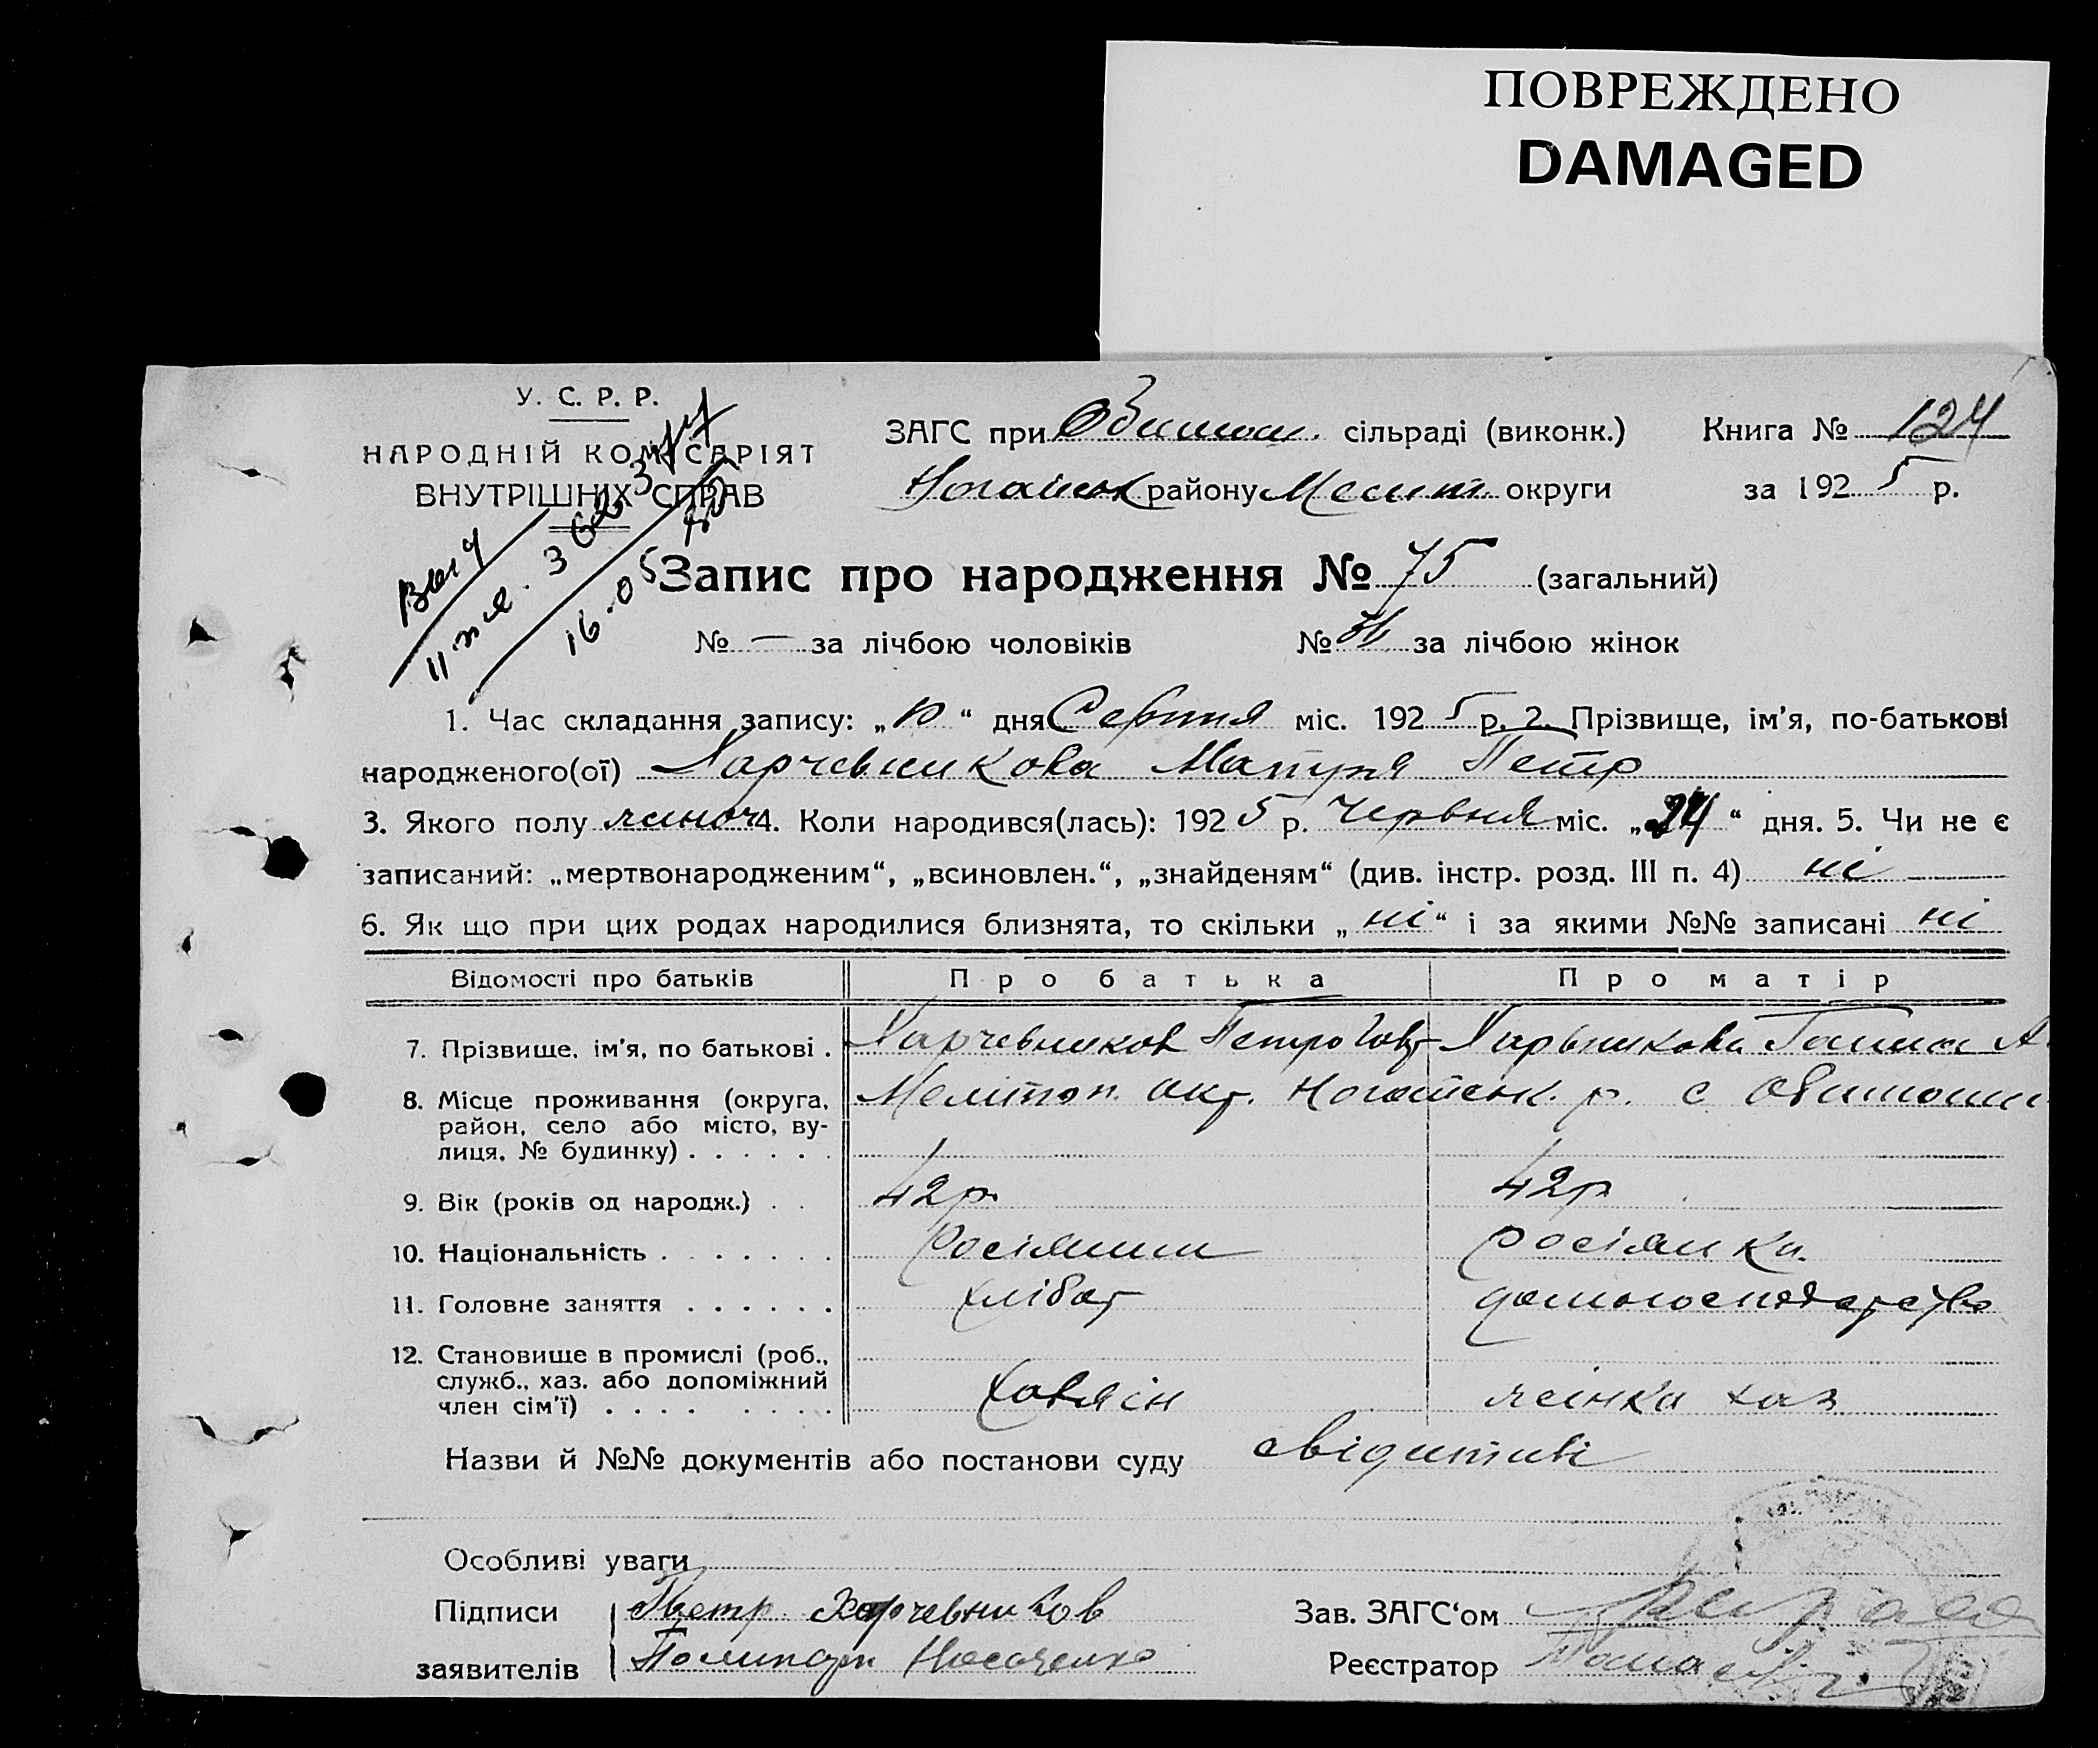 ПОВРЕЖДЕНО
DAMAGED
У. С. Р. Р.
НАРОДНІЙ КОМІСАРІЯТ
ВНУТРІШНІХ СПРАВ
ЗАГС при Обиточ. сільраді (виконк.) Книга № 124
Ногайськ району Мелит округи за 1925 р.
16-05
Запис про народження № 75 (загальний)
№ — за лічбою чоловіків № за лічбою жінок
1. Час складання запису: „10“ дня Серпня міс. 1925 р. 2. Прізвище, ім'я, по-батькові
народженого(ої) Харчевникова Петр
3. Якого полу жіноч 4. Коли народився(лась): 1925 р. Червня міс. „24“ дня. 5. Чи не є
записаний: „мертвонародженим“, „всиновлен.“, „знайденям“ (див. інстр. розд. III п. 4) ні
6. Як що при цих родах народилися близнята, то скільки „ні“ і за якими №№ записані ні
Відомості про батьків Про батька Про матір
7. Прізвище, ім'я, по батькові . Харчевников Петро Харьникова Ганна А.
8. Місце проживання (округа, Мелітоп. окр. Ногайськ. р. с Обиточии
район, село або місто, ву-
лиця, № будинку) . . . . . .
9. Вік (років од народж.) . . 42р 42р
10. Національність . . . . . . . Росіянин росіянка
11. Головне заняття . . . . . . хлібор домогосподарство
12. Становище в промислі (роб.,
служб., хаз. або допоміжний
член сім'ї) . . . . . . . . Хазяїн жінка хаз
Назви й №№ документів або постанови суду
Особливі уваги
Підписи Петр Харчевников Зав. ЗАГС'ом
заявителів Носаченко Реєстратор